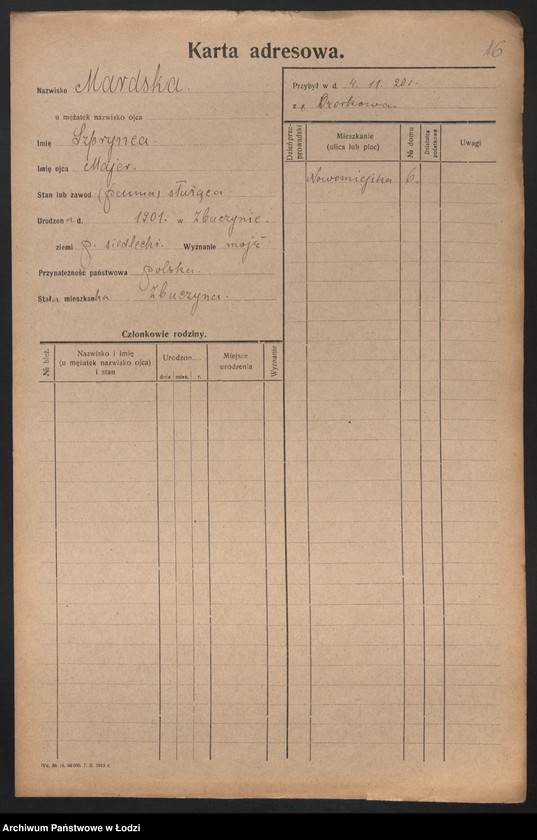 16
Karta adresowa.
Nazwisko Mardska.
u mężatek nazwisko ojca
Imię Szprynca
Imię ojca Majer.
Stan lub zawód (panna) służąca
Urodzona d. 1901. w Zbuczynie.
ziemi p. siedlecki. Wyznanie mojż.
Przynależność państwowa polska.
Stała mieszkanka Zbuczyna.
Przybył w d. 4. 11. 20 r.
z Ozorkowa
Dzień przeprowadzki
Mieszkanie
(ulica lub plac)
№ domu
Uwagi
Nowomiejska 6.
Członkowie rodziny.
№ bież.
Nazwisko i imię
(u mężatek nazwisko ojca)
i stan
Urodzon....
dnia mies. r.
Miejsce
urodzenia
Wyznanie
Archiwum Państwowe w Łodzi